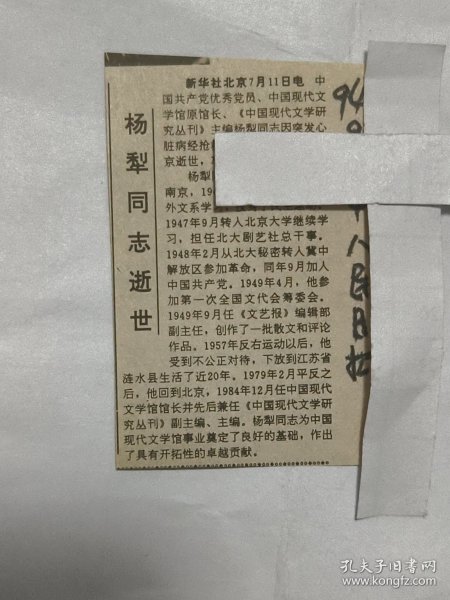 杨犁同志逝世
新华社北京7月11日电 中
国共产党优秀党员、中国现代文
学馆原馆长、《中国现代文学研
究丛刊》主编杨犁同志因突发心
脏病经抢
京逝世,
杨犁
南京,19
外文系学
1947年9月转入北京大学继续学
习,担任北大剧艺社总干事。
1948年2月从北大秘密转入冀中
解放区参加革命,同年9月加入
中国共产党。1949年4月,他参
加第一次全国文代会筹委会。
1949年9月任《文艺报》编辑部
副主任,创作了一批散文和评论
作品。1957年反右运动以后,他
受到不公正对待,下放到江苏省
涟水县生活了近20年。1979年2月平反之
后,他回到北京,1984年12月任中国现代
文学馆馆长并先后兼任《中国现代文学研
究丛刊》副主编、主编。杨犁同志为中国
现代文学馆事业奠定了良好的基础,作出
了具有开拓性的卓越贡献。
94
人民日报
孔夫子旧书网
www.kongfz.com